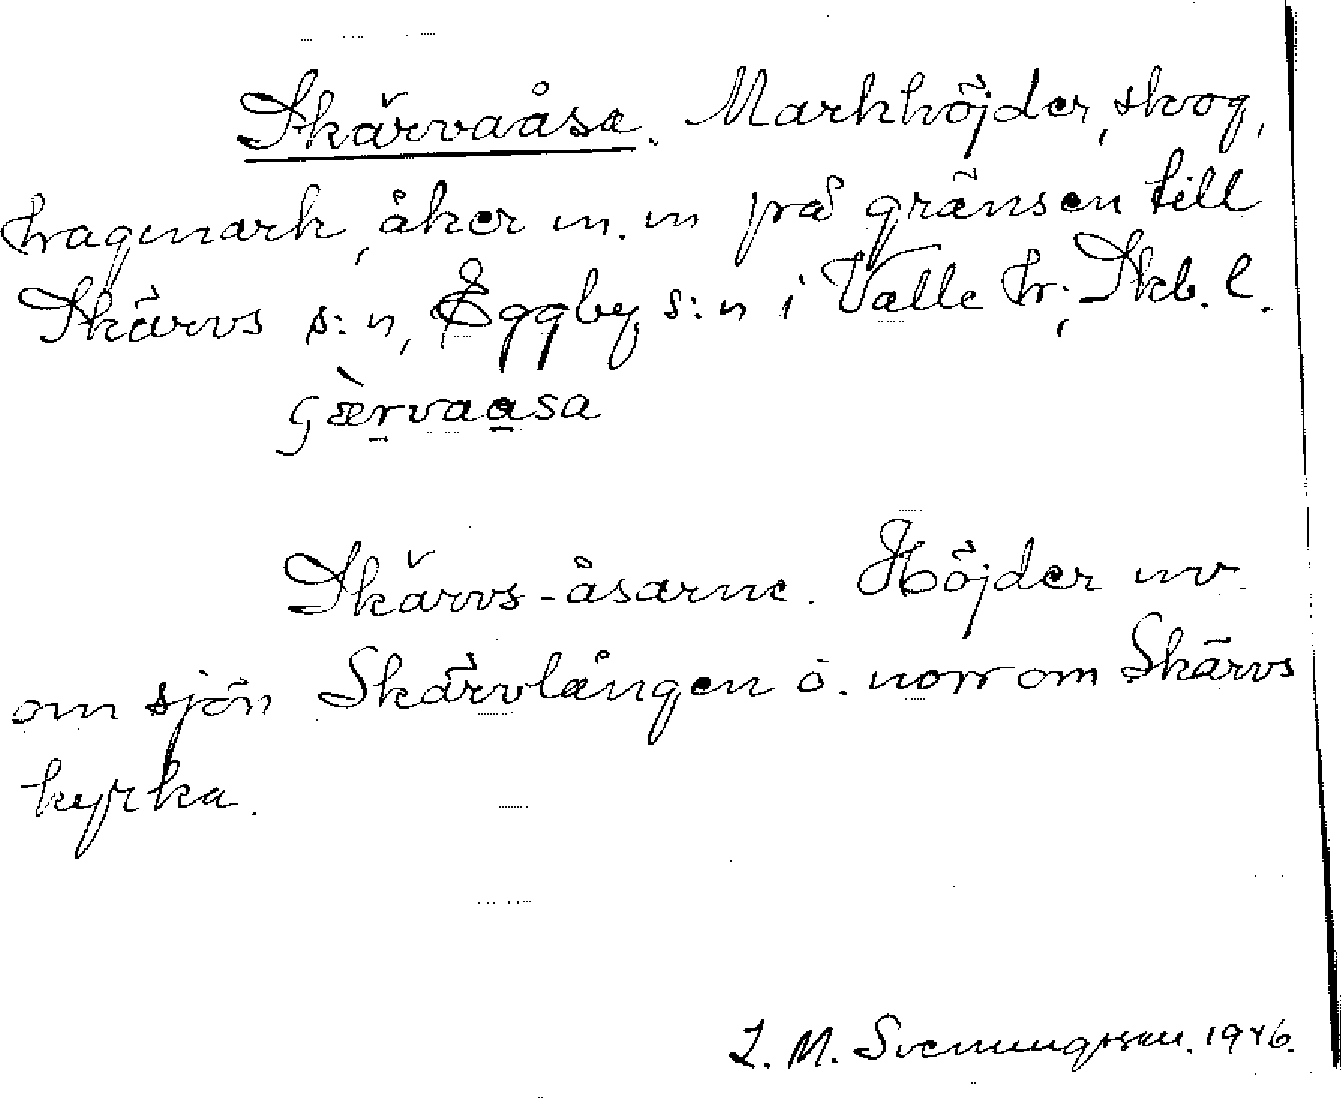 Skärvaåsa. Markhöjder, skog,
hagmark, åker m.m på gränsen till
Skärvs s:n, Eggby s:n i Valle hr; Skb. l.
Skärvs-åsarne. Höjder nv
om sjön Skärvlången o. norr om Skärvs
kyrka.
L. M. Svenungsson. 1946.